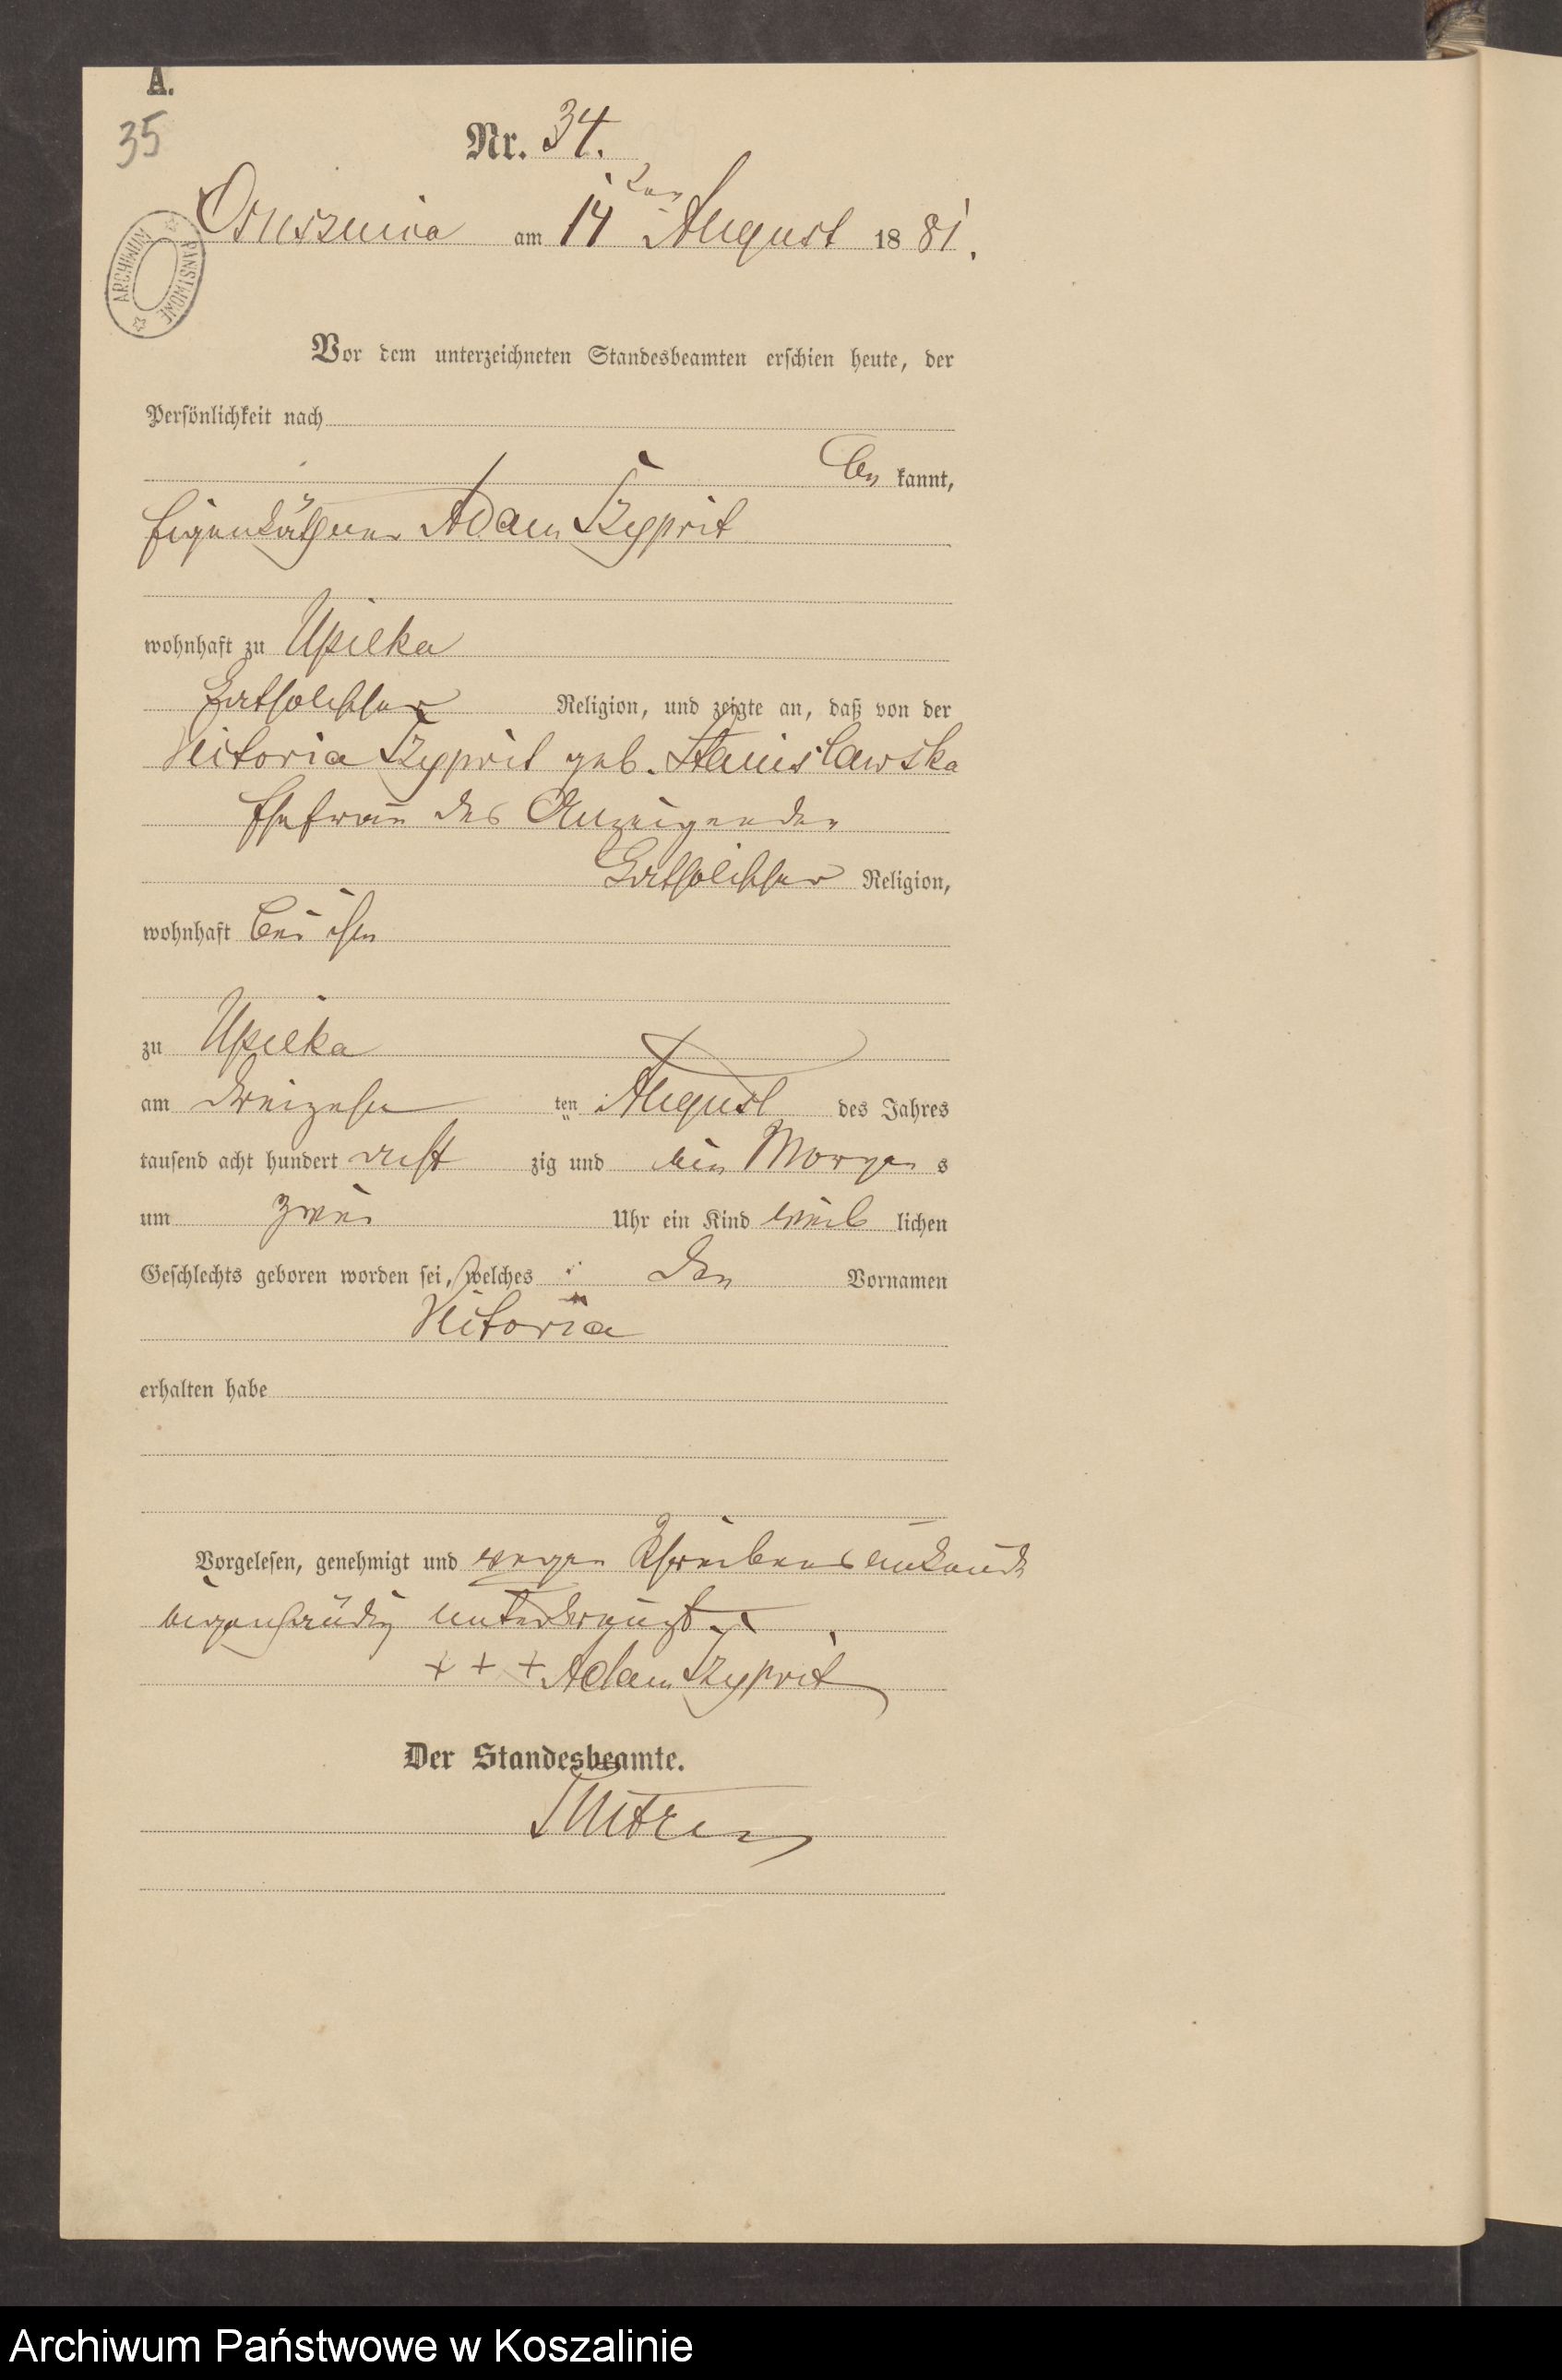 A.
35
Nr. 34.
Ossuszniva am 14ten August 1881.
ARCHIWUM PAŃSTWOWE
Vor dem unterzeichneten Standesbeamten erschien heute, der
Persönlichkeit nach
be kannt,
Eigenkäthner Adam Szyprit
wohnhaft zu Upilka
katholischer Religion, und zeigte an, daß von der
Victoria Szyprit geb. Stanislawska
Ehefrau des Anzeigenden
katholischer Religion,
wohnhaft bei ihm
zu Upilka
am dreizehn ten August des Jahres
tausend acht hundert acht zig und ein Morgen s
um zwei Uhr ein Kind weib lichen
Geschlechts geboren worden sei, welches den Vornamen
Victoria
erhalten habe
Vorgelesen, genehmigt und wegen Schreibensunkunde
eigenhändig unterkreuzt.
+ + + Adam Szyprit
Der Standesbeamte.
Archiwum Państwowe w Koszalinie